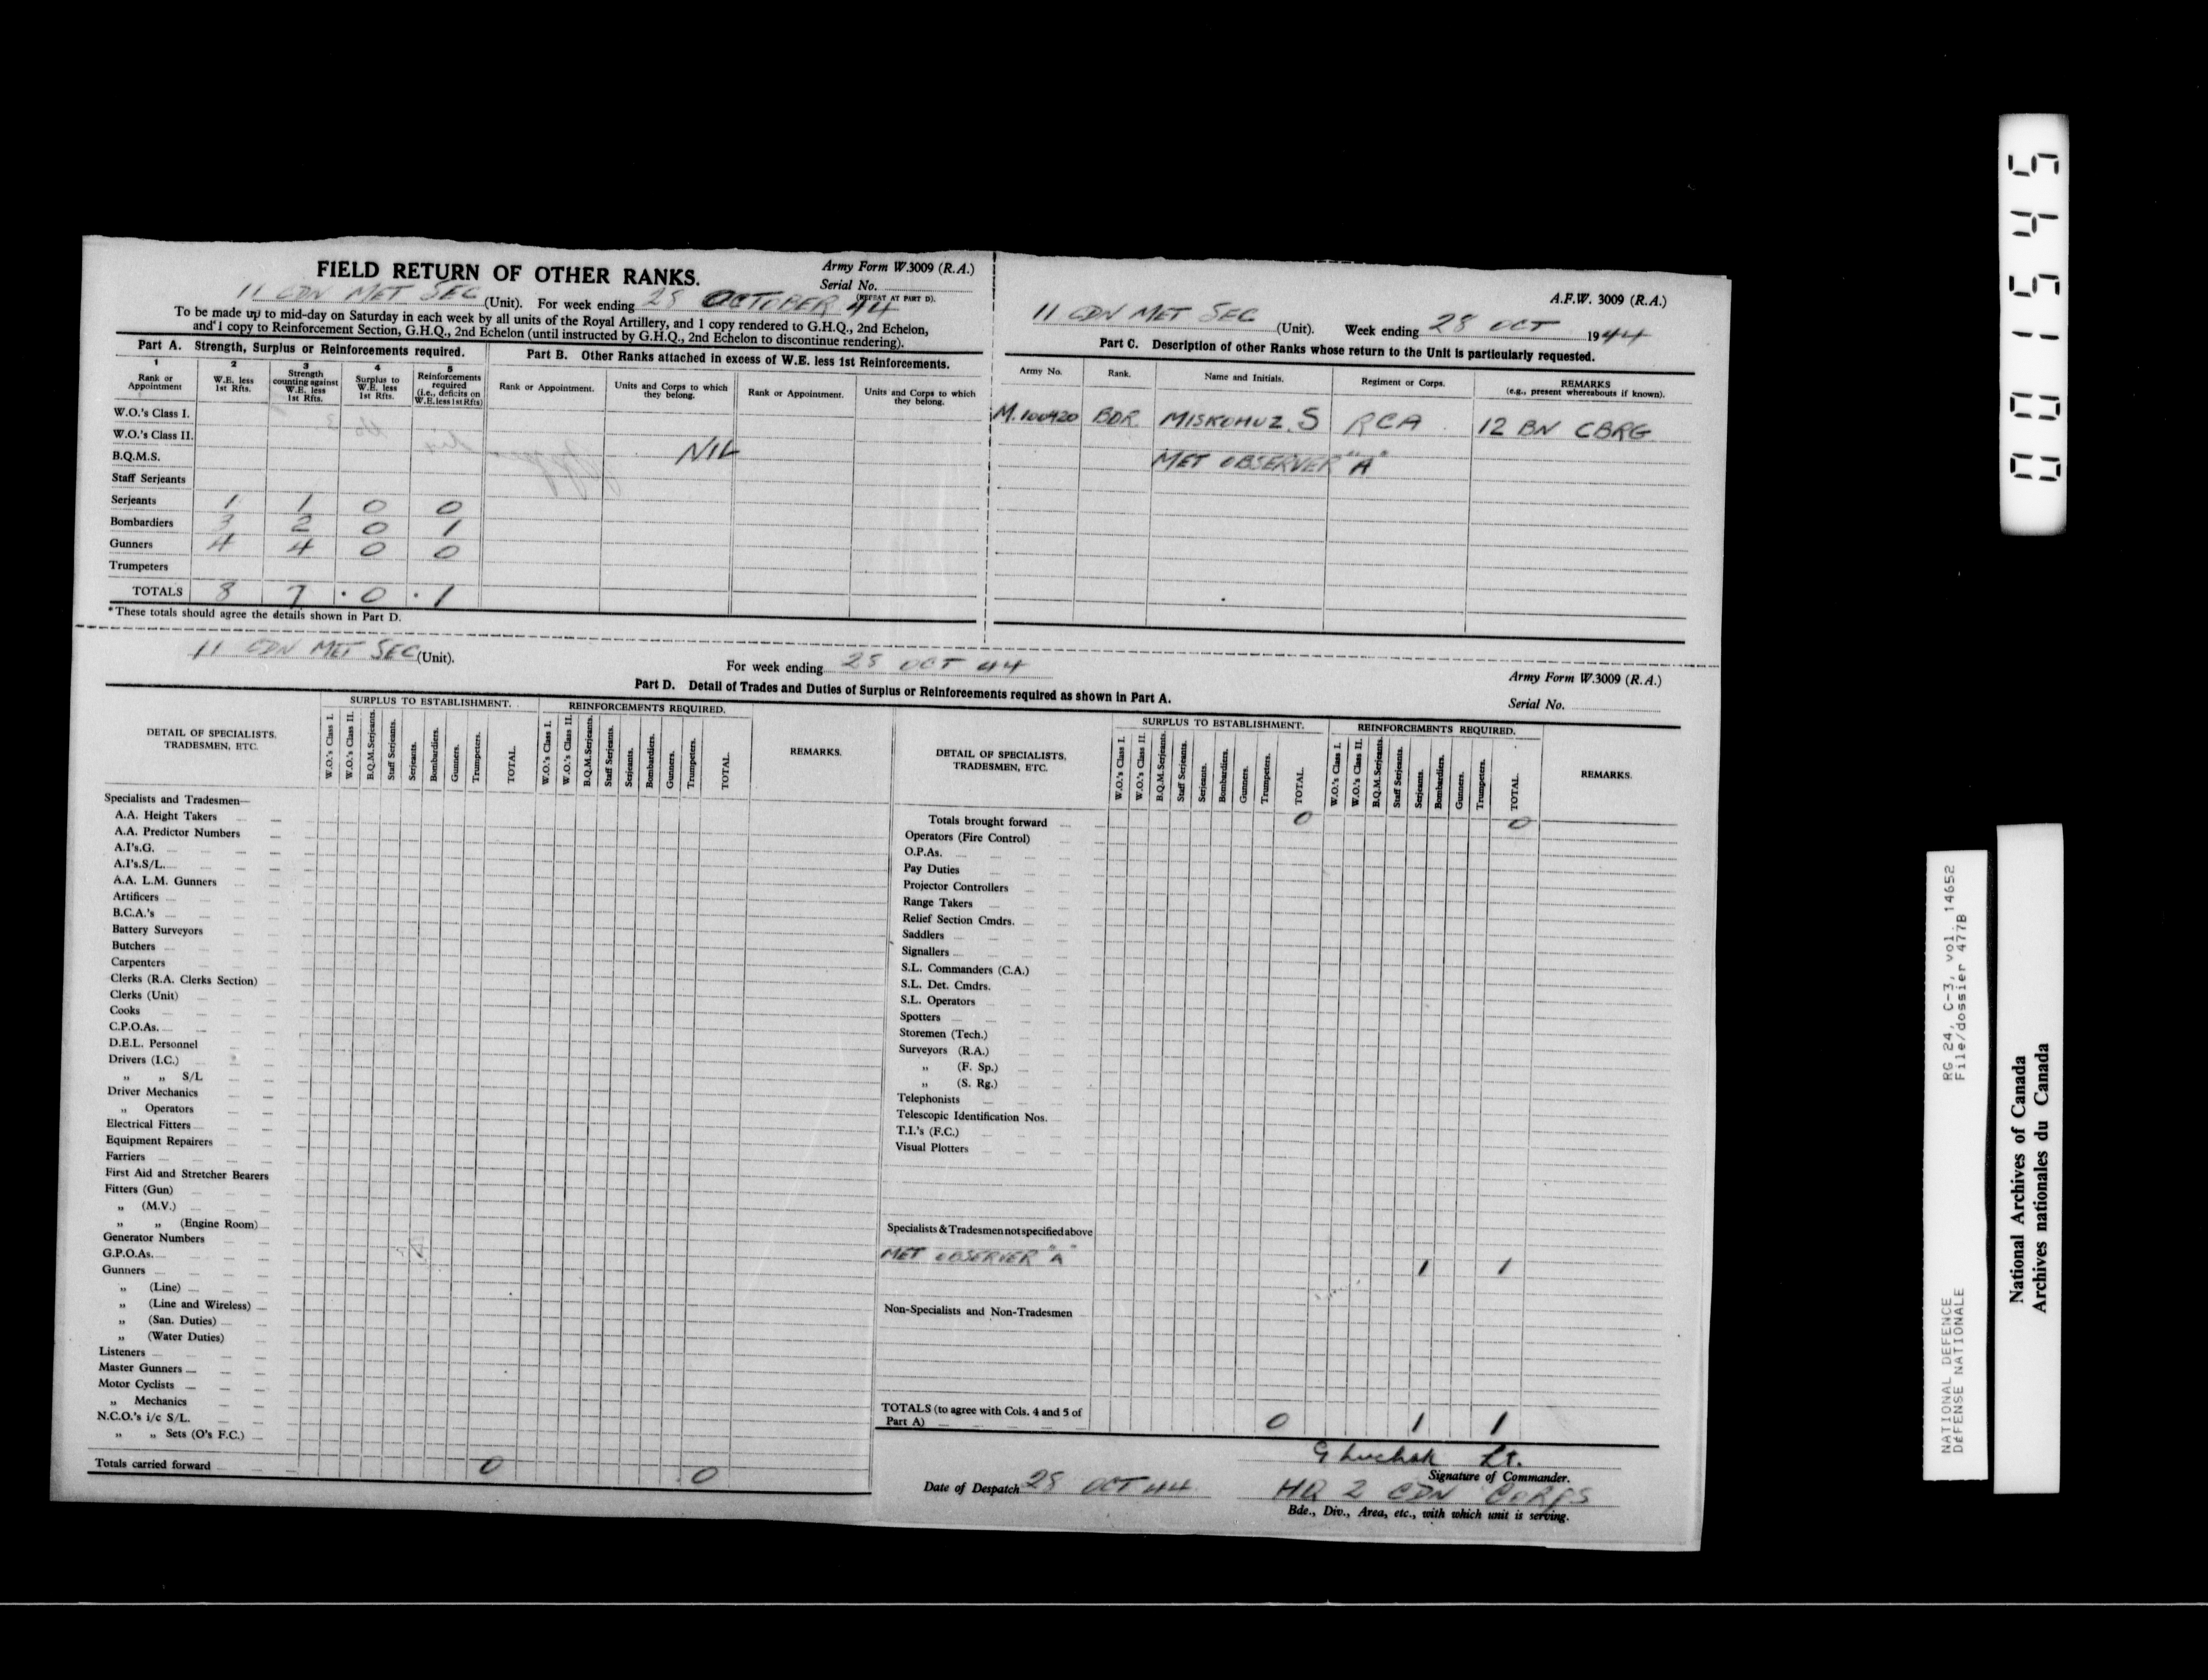 FIELD RETURN OF OTHER RANKS.
Army Form W.3009 (R.A.)
Serial No.
(REPEAT AT PART D).
11 CDN MET SEC (Unit). For week ending 28 OCTOBER 44
To be made up to mid-day on Saturday in each week by all units of the Royal Artillery, and 1 copy rendered to G.H.Q., 2nd Echelon,
and 1 copy to Reinforcement Section, G.H.Q., 2nd Echelon (until instructed by G.H.Q., 2nd Echelon to discontinue rendering).
Part A. Strength, Surplus or Reinforcements required.
1 2 3 4 5
Rank or Appointment
W.E. less 1st Rfts.
Strength counting against W.E. less 1st Rfts.
Surplus to W.E. less 1st Rfts.
Reinforcements required (i.e., deficits on W.E. less 1st Rfts)
W.O.'s Class I.
W.O.'s Class II.
B.Q.M.S.
Staff Serjeants
Serjeants 1 1 0 0
Bombardiers 3 2 0 1
Gunners 4 4 0 0
Trumpeters
TOTALS 8 7 0 1
*These totals should agree the details shown in Part D.
Part B. Other Ranks attached in excess of W.E. less 1st Reinforcements.
Rank or Appointment.
Units and Corps to which they belong.
Rank or Appointment.
Units and Corps to which they belong.
NIL
A.F.W. 3009 (R.A.)
11 CDN MET SEC (Unit). Week ending 28 OCT 1944
Part C. Description of other Ranks whose return to the Unit is particularly requested.
Army No. Rank. Name and Initials. Regiment or Corps. REMARKS
(e.g., present whereabouts if known).
M.100420 BDR MISKOHUZ. S RCA 12 BN CBRG
MET OBSERVER "A"
11 CDN MET SEC (Unit).
For week ending 28 OCT 44
Army Form W.3009 (R.A.)
Serial No.
Part D. Detail of Trades and Duties of Surplus or Reinforcements required as shown in Part A.
DETAIL OF SPECIALISTS, TRADESMEN, ETC.
SURPLUS TO ESTABLISHMENT.
W.O.'s Class I. W.O.'s Class II. B.Q.M.Serjeants. Staff Serjeants. Serjeants. Bombardiers. Gunners. Trumpeters. TOTAL.
REINFORCEMENTS REQUIRED.
W.O.'s Class I. W.O.'s Class II. B.Q.M.Serjeants. Staff Serjeants. Serjeants. Bombardiers. Gunners. Trumpeters. TOTAL.
REMARKS.
Specialists and Tradesmen—
A.A. Height Takers
A.A. Predictor Numbers
A.I's.G.
A.I's.S/L.
A.A. L.M. Gunners
Artificers
B.C.A.'s
Battery Surveyors
Butchers
Carpenters
Clerks (R.A. Clerks Section)
Clerks (Unit)
Cooks
C.P.O.As.
D.E.L. Personnel
Drivers (I.C.)
„ „ S/L
Driver Mechanics
„ Operators
Electrical Fitters
Equipment Repairers
Farriers
First Aid and Stretcher Bearers
Fitters (Gun)
„ (M.V.)
„ „ (Engine Room)
Generator Numbers
G.P.O.As.
Gunners
„ (Line)
„ (Line and Wireless)
„ (San. Duties)
„ (Water Duties)
Listeners
Master Gunners
Motor Cyclists
„ Mechanics
N.C.O.'s i/c S/L.
„ „ Sets (O's F.C.)
Totals carried forward 0 0
DETAIL OF SPECIALISTS, TRADESMEN, ETC.
SURPLUS TO ESTABLISHMENT.
W.O.'s Class I. W.O.'s Class II. B.Q.M.Serjeants. Staff Serjeants. Serjeants. Bombardiers. Gunners. Trumpeters. TOTAL.
REINFORCEMENTS REQUIRED.
W.O.'s Class I. W.O.'s Class II. B.Q.M.Serjeants. Staff Serjeants. Serjeants. Bombardiers. Gunners. Trumpeters. TOTAL.
REMARKS.
Totals brought forward 0 0
Operators (Fire Control)
O.P.As.
Pay Duties
Projector Controllers
Range Takers
Relief Section Cmdrs.
Saddlers
Signallers
S.L. Commanders (C.A.)
S.L. Det. Cmdrs.
S.L. Operators
Spotters
Storemen (Tech.)
Surveyors (R.A.)
„ (F. Sp.)
„ (S. Rg.)
Telephonists
Telescopic Identification Nos.
T.I.'s (F.C.)
Visual Plotters
Specialists & Tradesmen not specified above
MET OBSERVER "A" 1 1
Non-Specialists and Non-Tradesmen
TOTALS (to agree with Cols. 4 and 5 of
Part A) 0 1 1
G Luchak Lt.
Signature of Commander.
Date of Despatch 28 OCT 44
HQ 2 CDN CORPS
Bde., Div., Area, etc., with which unit is serving.
001545
NATIONAL DEFENCE RG 24, C-3, vol. 14652
DÉFENSE NATIONALE File/dossier 477B
National Archives of Canada
Archives nationales du Canada